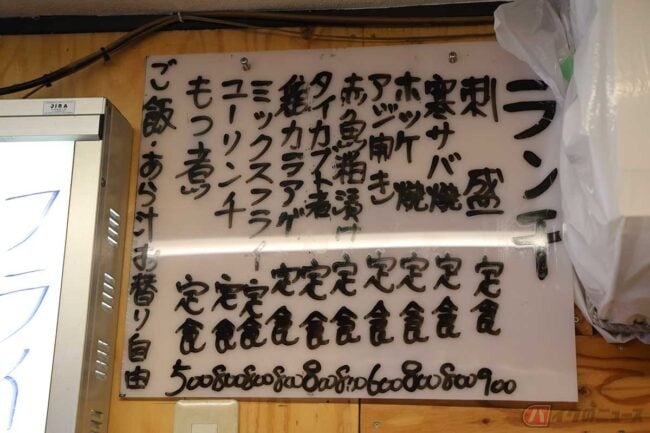 ランチ
刺 盛 定食 900
寒サバ焼 定食 800
ホッケ焼 定食 800
アジ開き 定食 600
赤魚粕漬け 定食 800
タイカブト煮 定食 800
鶏カラアゲ 定食 800
ミックスフライ 定食 800
ユーリンチ 定食 800
もつ煮 定食 500
ご飯・あら汁お替り自由
JIRA
フライ